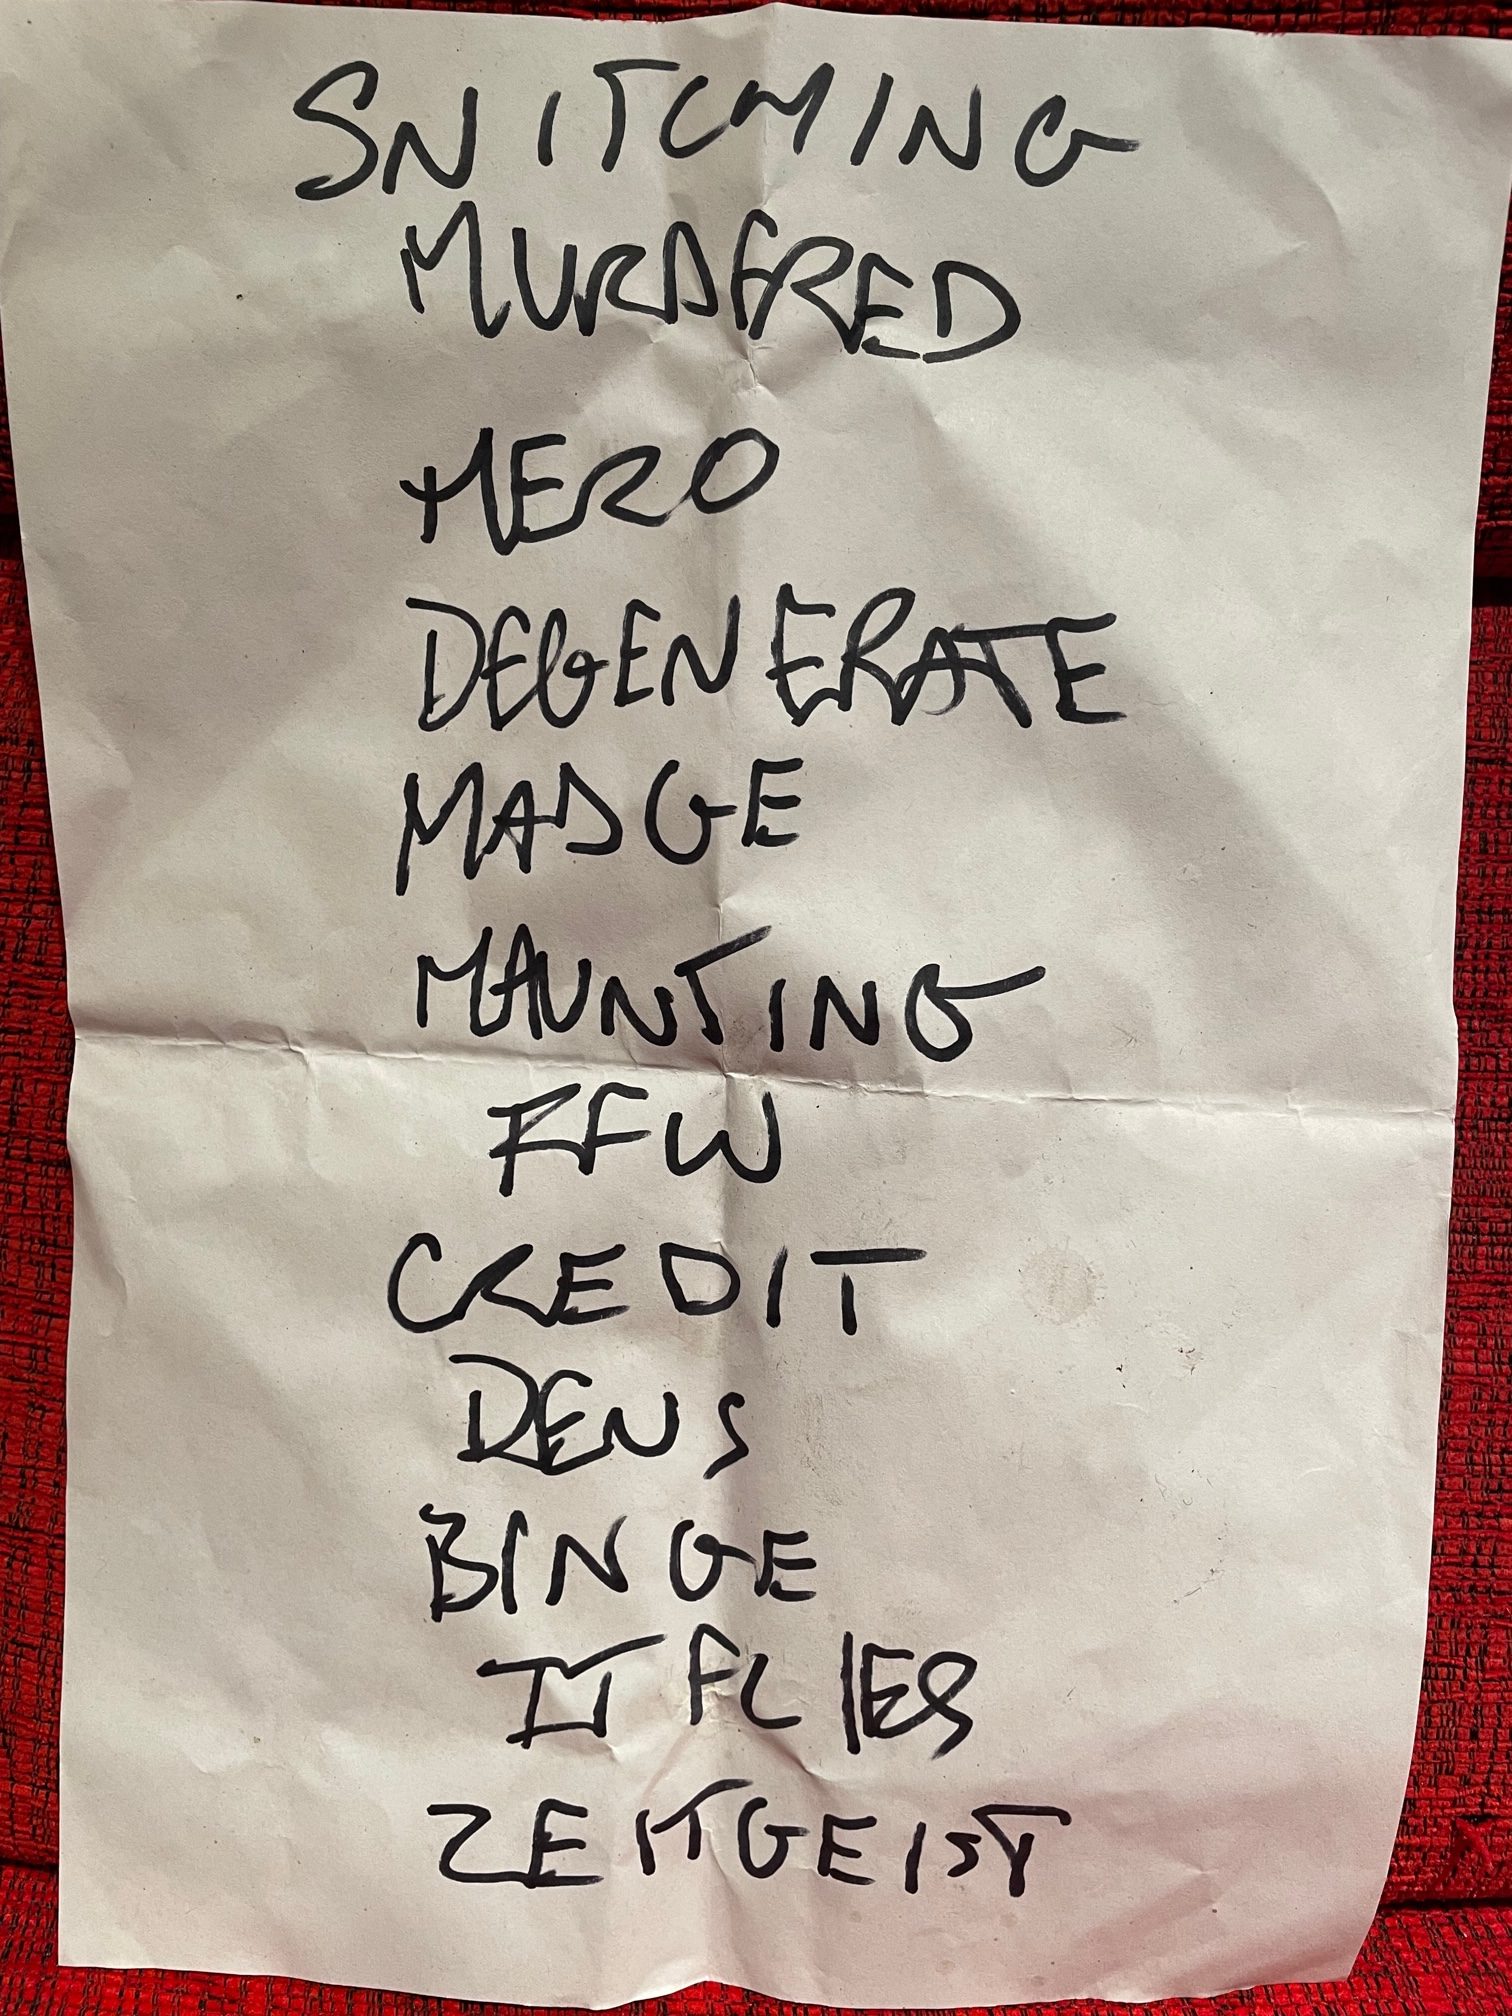 SNITCHING
MURDERED
HERO
DEGENERATE
MADGE
HAUNTING
FFW
CREDIT
DENS
BINGE
IT FLIES
ZEITGEIST